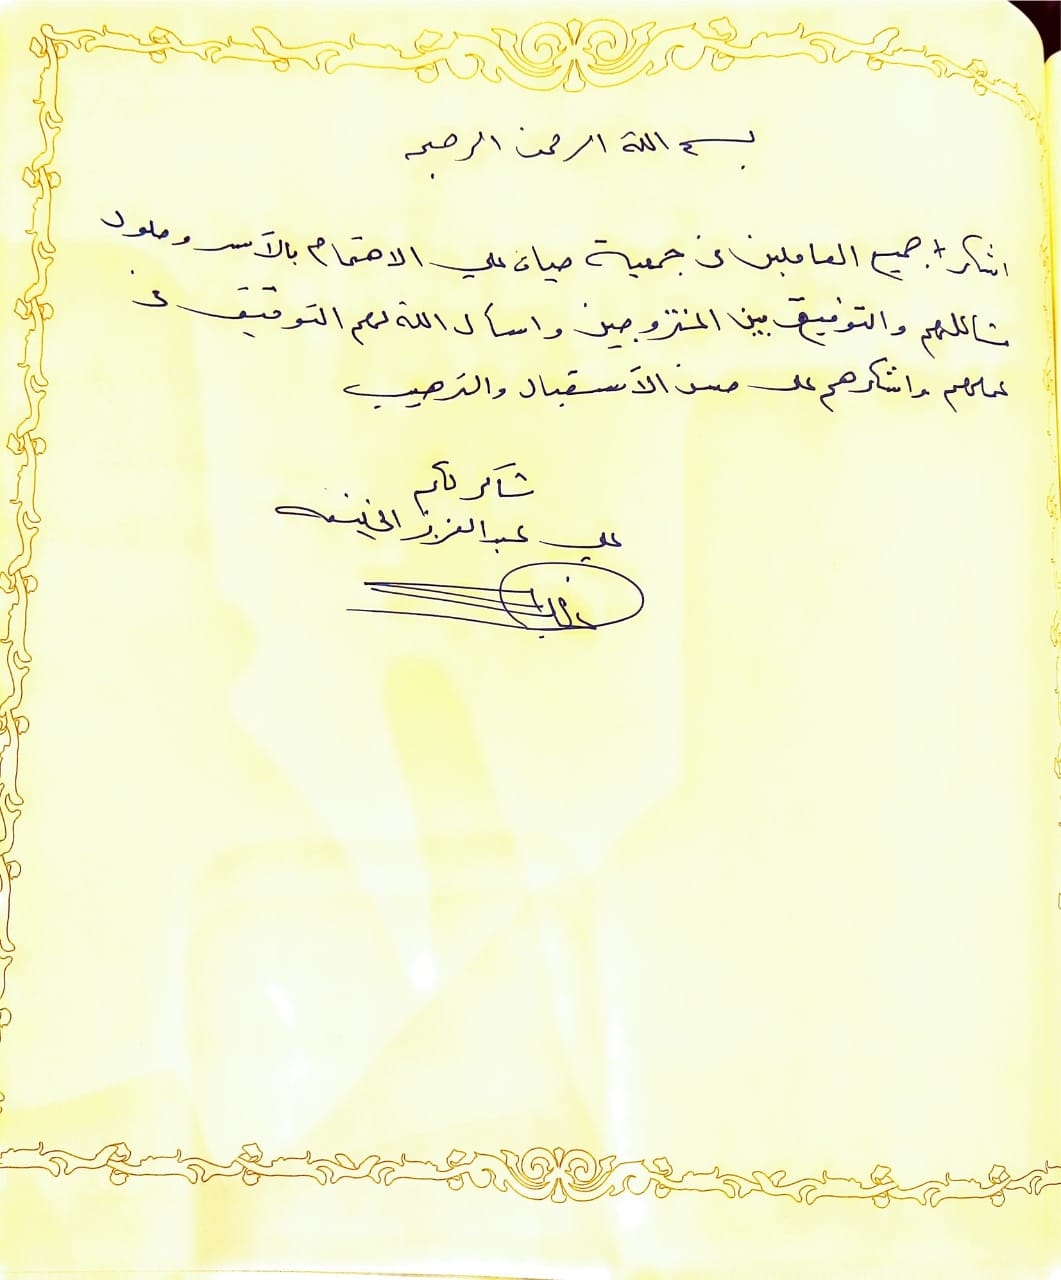 بسم الله الرحمن الرحيم
اشكر جميع العاملين في جمعية صيانة علي الاهتمام بالأسر وحلول
مشاكلهم والتوفيق بين المتزوجين واسأل الله لهم التوفيق في
عملهم واشكرهم على حسن الأستقبال والترحيب
شاكر لكم
علي عبدالعزيز